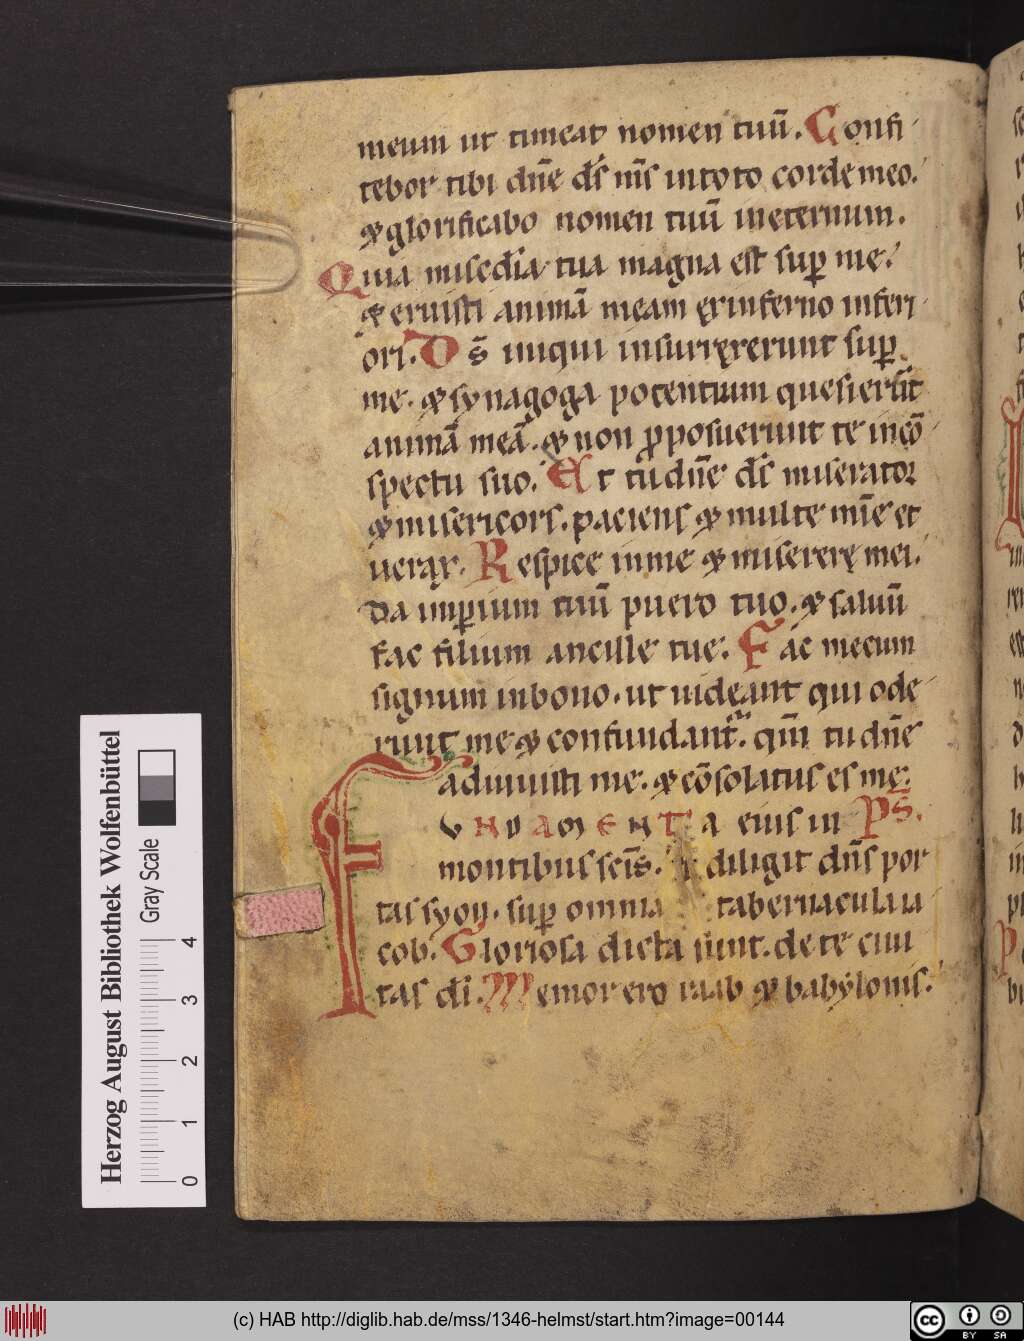 meum ut timeat nomen tuū. Confi
tebor tibi dn̄e ds̄ ms̄ intoto cordę meo.
⁊ glorificabo nomen tuū ineternum.
Quia misc̄dia tua magna est sup̱ me.
⁊ eruisti animā meam ęxinferno inferi
ori. Ds̄ iniqui insurręxerunt sup̱
me. ⁊ synagoga potentium quesierūt
animā meā. ⁊ non p̱posuerunt te incō
spectu suo. Et tu dn̄e ds̄ miserator
⁊ misericors. paciens ⁊ multe mīe et
uerax. Respice inme ⁊ misererę mei.
da imp̱ium tuū puero tuo. ⁊ saluū
fac filium ancille tue. Fac mecum
signum inbono. ut uideant qui ode
runt me ⁊ confundant᷑. qm̄ tu dn̄e
adiuuisti me. ⁊ cōsolatus es me.
FVNDAMENTA eius in PS̄.
montibus sc̄is. diligit dn̄s por
tas syon. sup̱ omnia tabernacula ia
cob. Gloriosa dicta sunt. de te ciui
tas dī. Memor ero raab ⁊ babylonis.
Herzog August Bibliothek Wolfenbüttel
Gray Scale
0 1 2 3 4
(c) HAB http://diglib.hab.de/mss/1346-helmst/start.htm?image=00144
cc BY SA